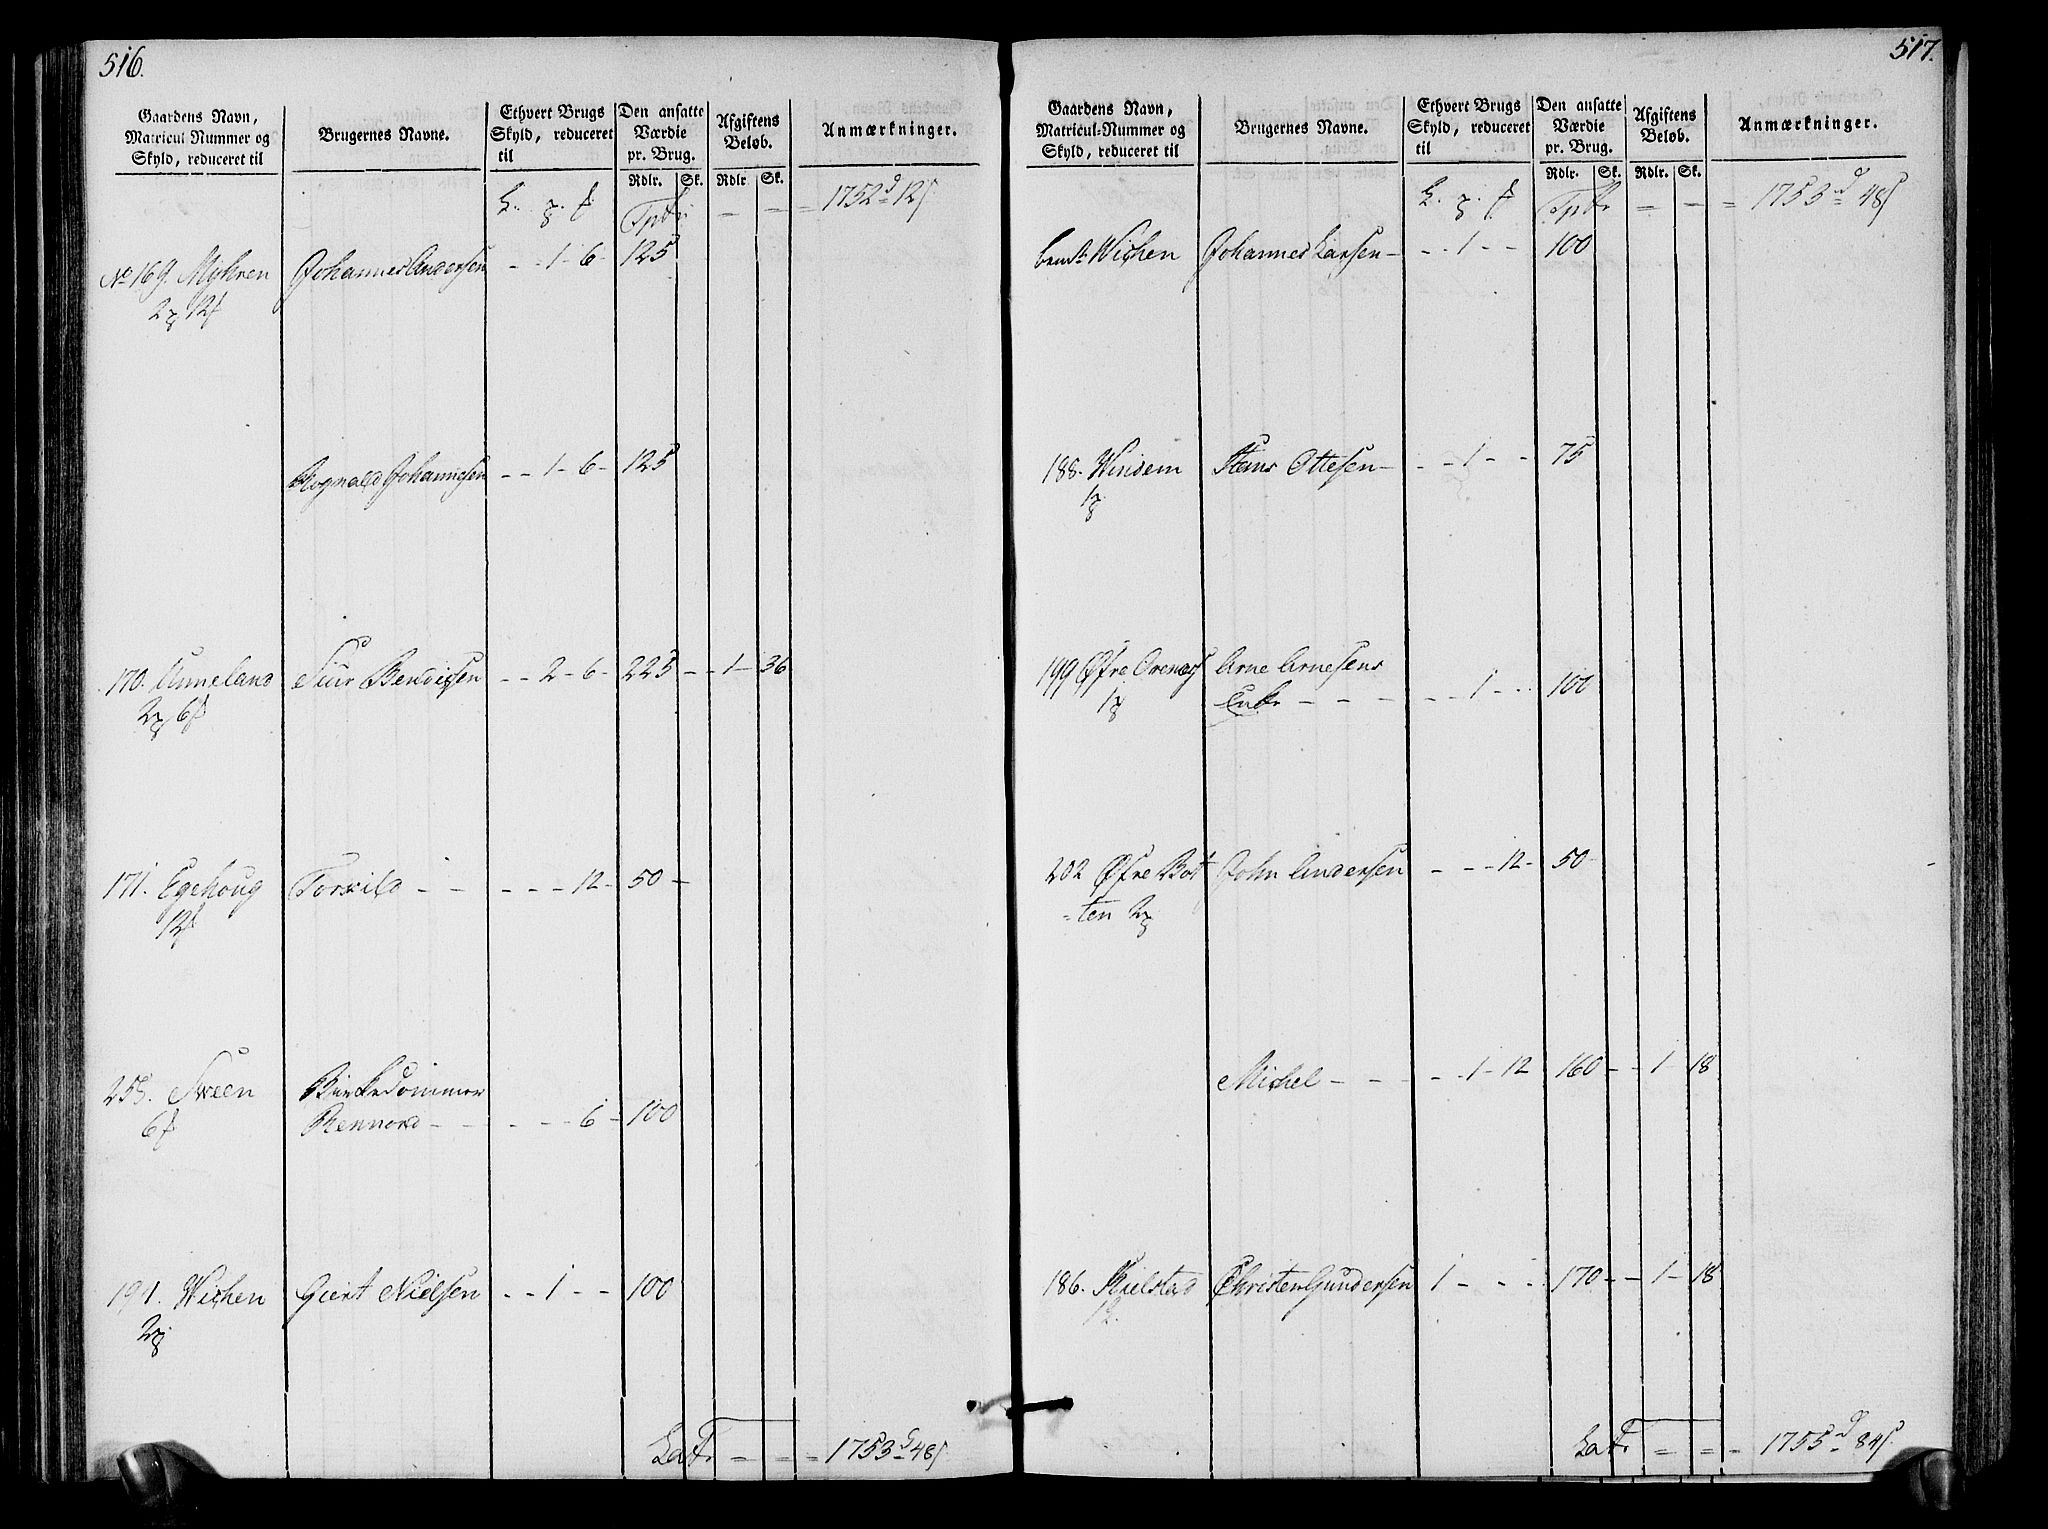 516.
Gaardens Navn, Matricul Nummer og Skyld, reduceret til
Brugernes Navne.
Ethvert Brugs Skyld, reduceret til
Den ansatte Værdie pr. Brug.
Rdlr. Sk.
Afgiftens Beløb.
Rdlr Sk.
Anmærkninger.
Tptr - - 1752 d 12 s
No 169. Myhren Johannes Andersen - - 1 - 6 - 125
Rognald Johannesen - - 1 - 6 - 125
170. Unneland Siur Bendixsen - - 2 - 6 - 225 - - 1 - 36
171. Egehoug Torkild - - - - - - 12 - 50 -
255. Sween Birkedommer
Rennord - - - - - 6 - 100
191. Wichen Giert Nielsen - - 1 - - 100
Latr - - - 1753 d 48 s
517.
Gaardens Navn, Matricul-Nummer og Skyld, reduceret til
Brugernes Navne.
Ethvert Brugs Skyld, reduceret til
Den ansatte Værdie pr. Brug.
Rdlr. Sk.
Afgiftens Beløb.
Rdlr. Sk.
Anmærkninger.
Tptr = - = 1753 d 48 s
bemt Wichen Johannes Larsen - - - 1 - - 100
188. Windem Hans Ottesen - - - 1 - - 75
199 Øfre Orenæs Arne Arnesens
Enke - - - - - - 1 - - 100
202 Øfre Bot John Andersen - - - 12 - 50 -
=ten
Michel - - - - - 1 - 12 160 - - 1 - 18
186. Kielstad Christen Gundersen 1 - - - 170 - - 1 - 18
Latr = = - 1755 d 84 s